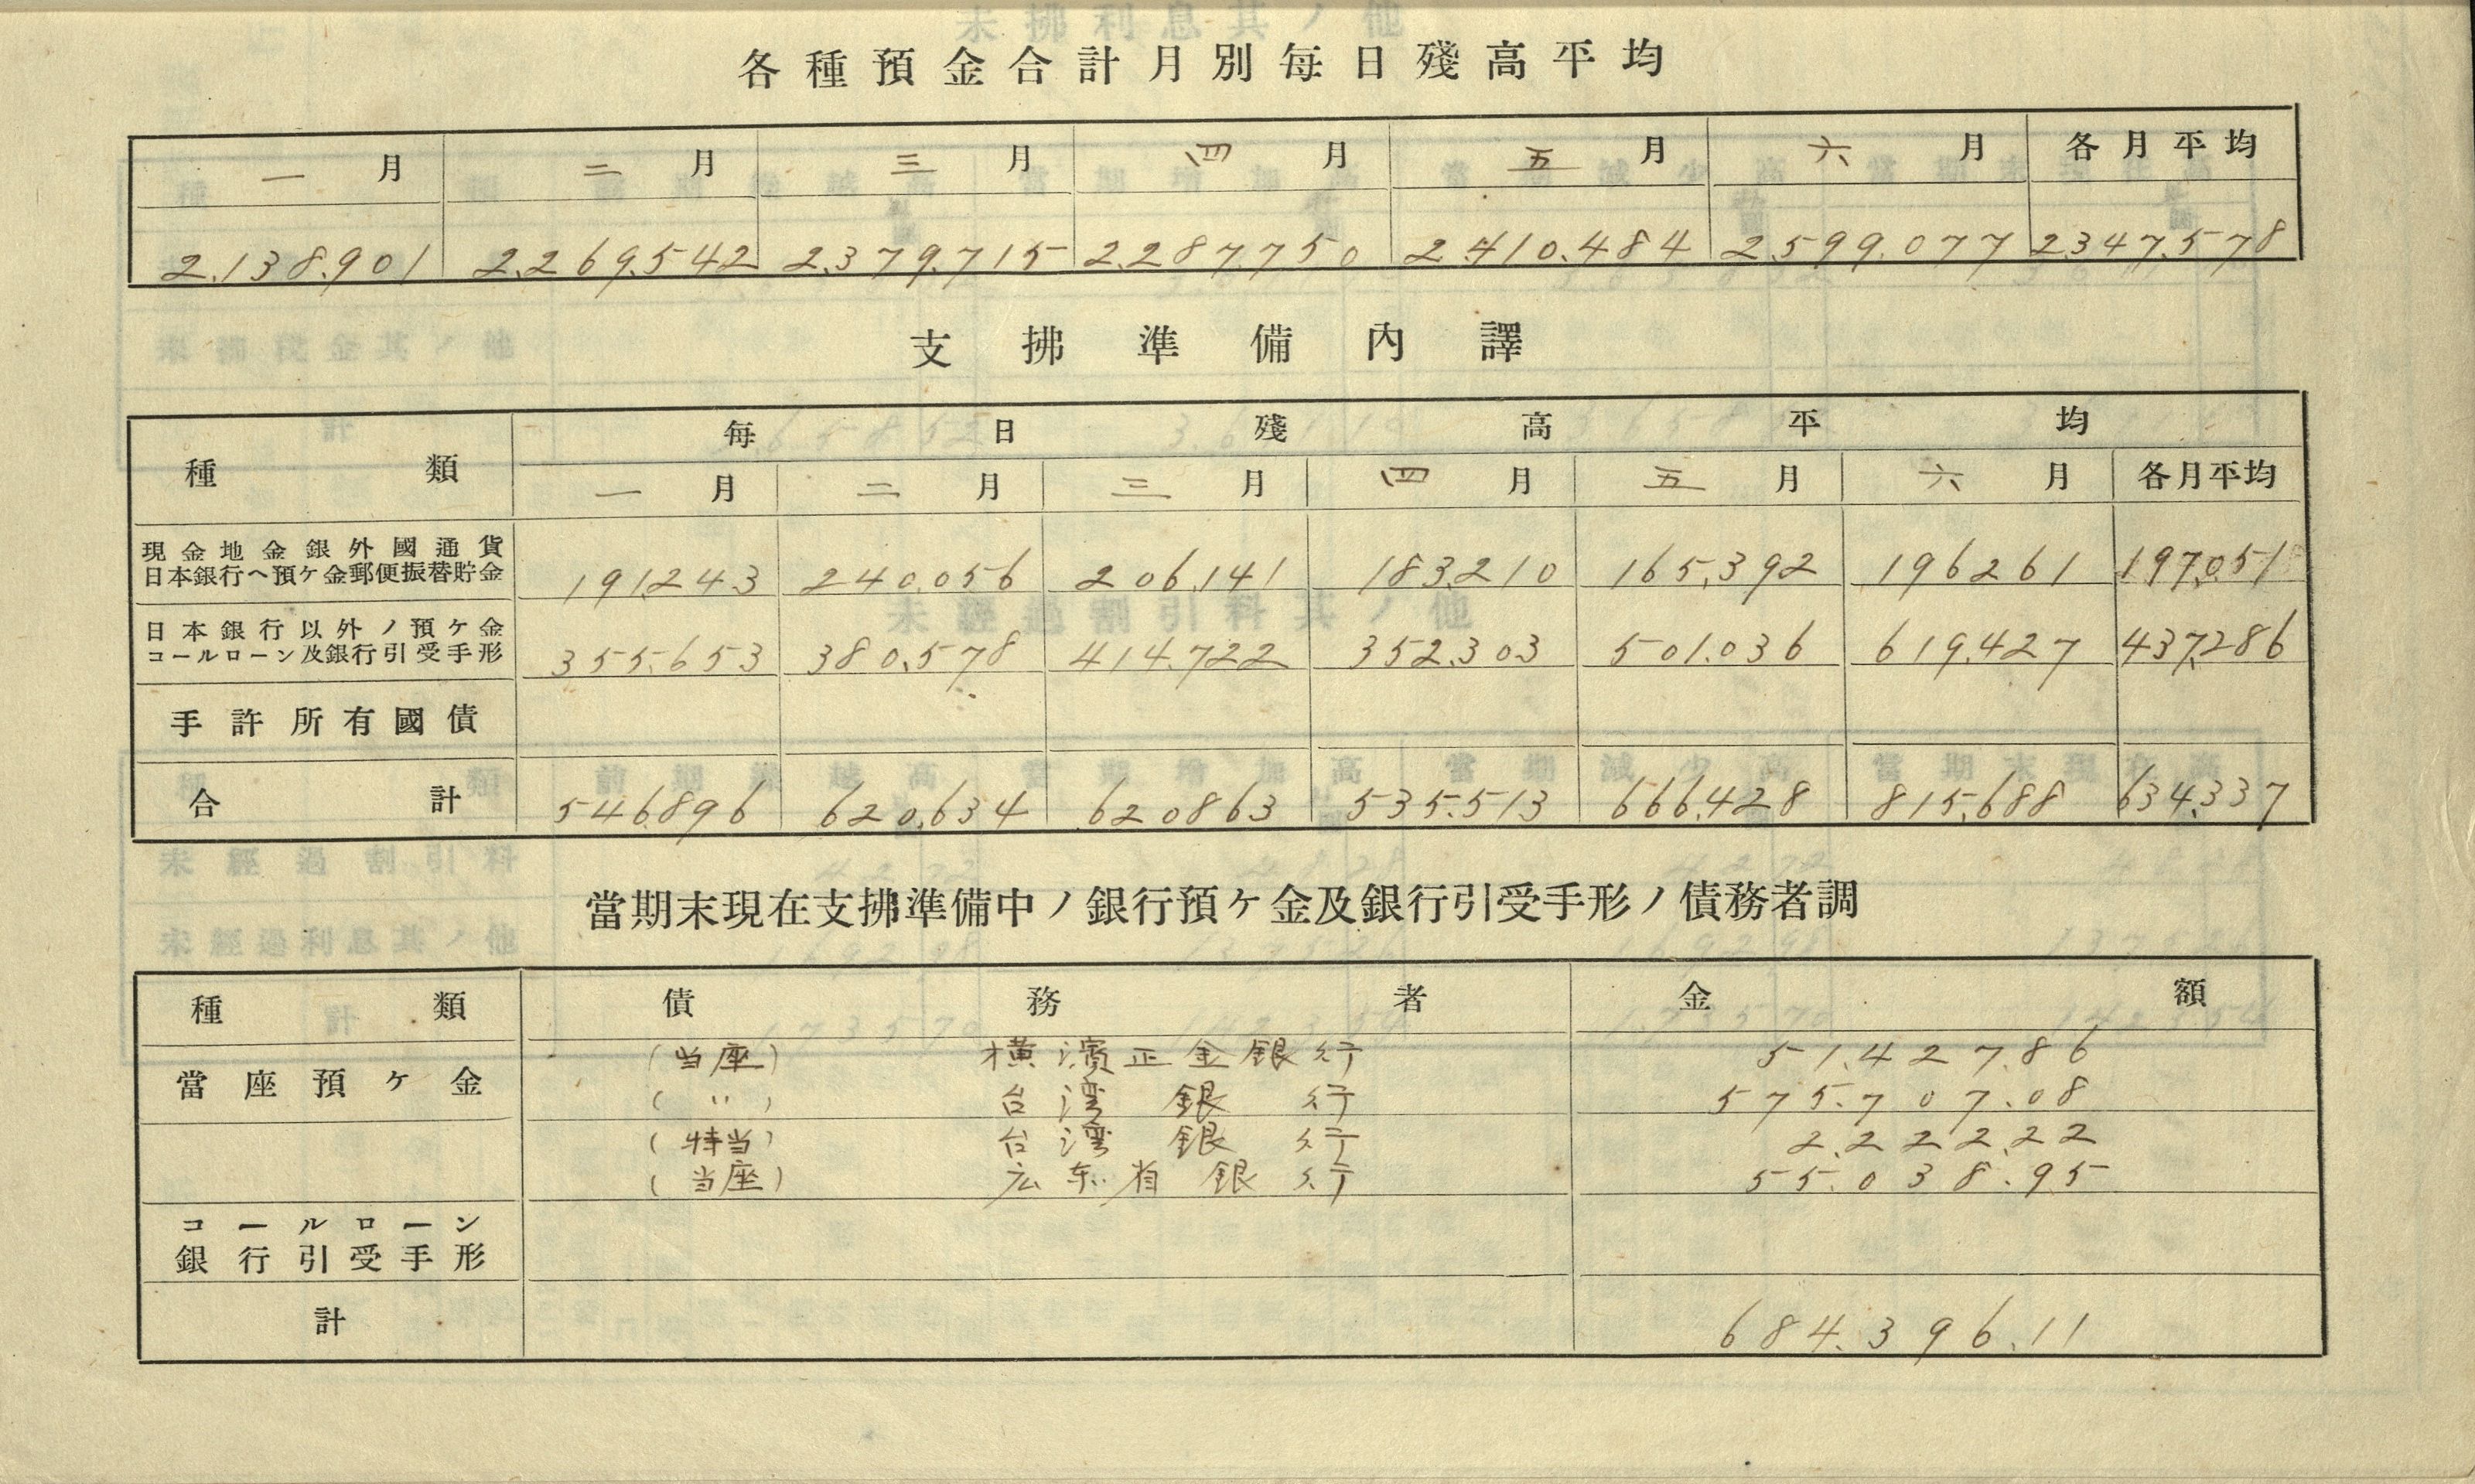 各種預金合計月別毎日殘高平均
一月 二月 三月 四月 五月 六月 各月平均
2.138.901 2.269.542 2.379.715 2.287.750 2.410.484 2.599.077 2.347.578
支拂準備內譯
種類 毎日殘高平均
一月 二月 三月 四月 五月 六月 各月平均
現金地金銀外國通貨
日本銀行ヘ預ケ金郵便振替貯金 191.243 240.056 206.141 183.210 165.392 196.261 197.051
日本銀行以外ノ預ケ金
コールローン及銀行引受手形 355.653 380.578 414.722 352.303 501.036 619.427 437.286
手許所有國債
合計 546.896 620.634 620.863 535.513 666.428 815.688 634.337
當期末現在支拂準備中ノ銀行預ケ金及銀行引受手形ノ債務者調
種類 債務者 金額
當座預ケ金 (当座) 横濱正金銀行 51.427.86
(〃) 台湾銀行 575.707.08
(特当) 台湾銀行 2.222.22
(当座) 広东省銀行 55.038.95
コールローン
銀行引受手形
計 684.396.11